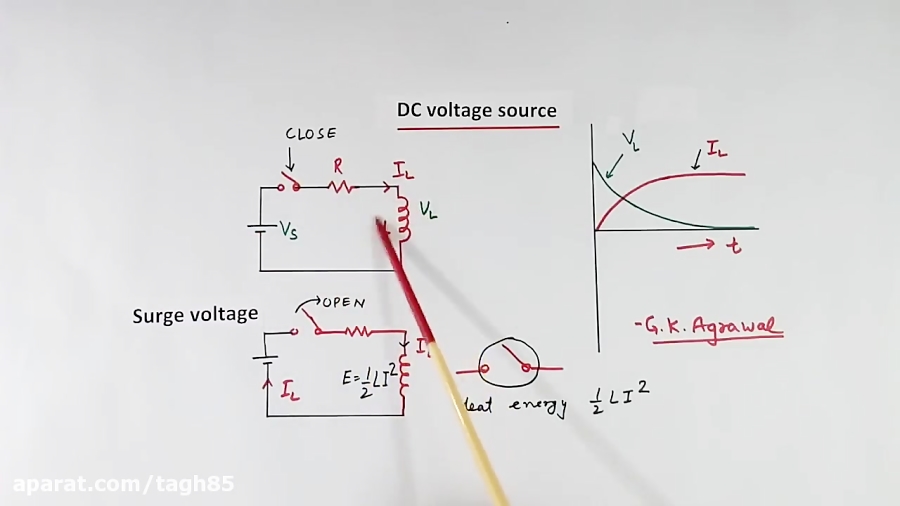 DC voltage source
CLOSE
R
I_L
V_L
V_S
V_L
I_L
t
Surge voltage
OPEN
I_L
E=½LI²
-G.K. Agrawal
energy ½ LI²
aparat.com/tagh85